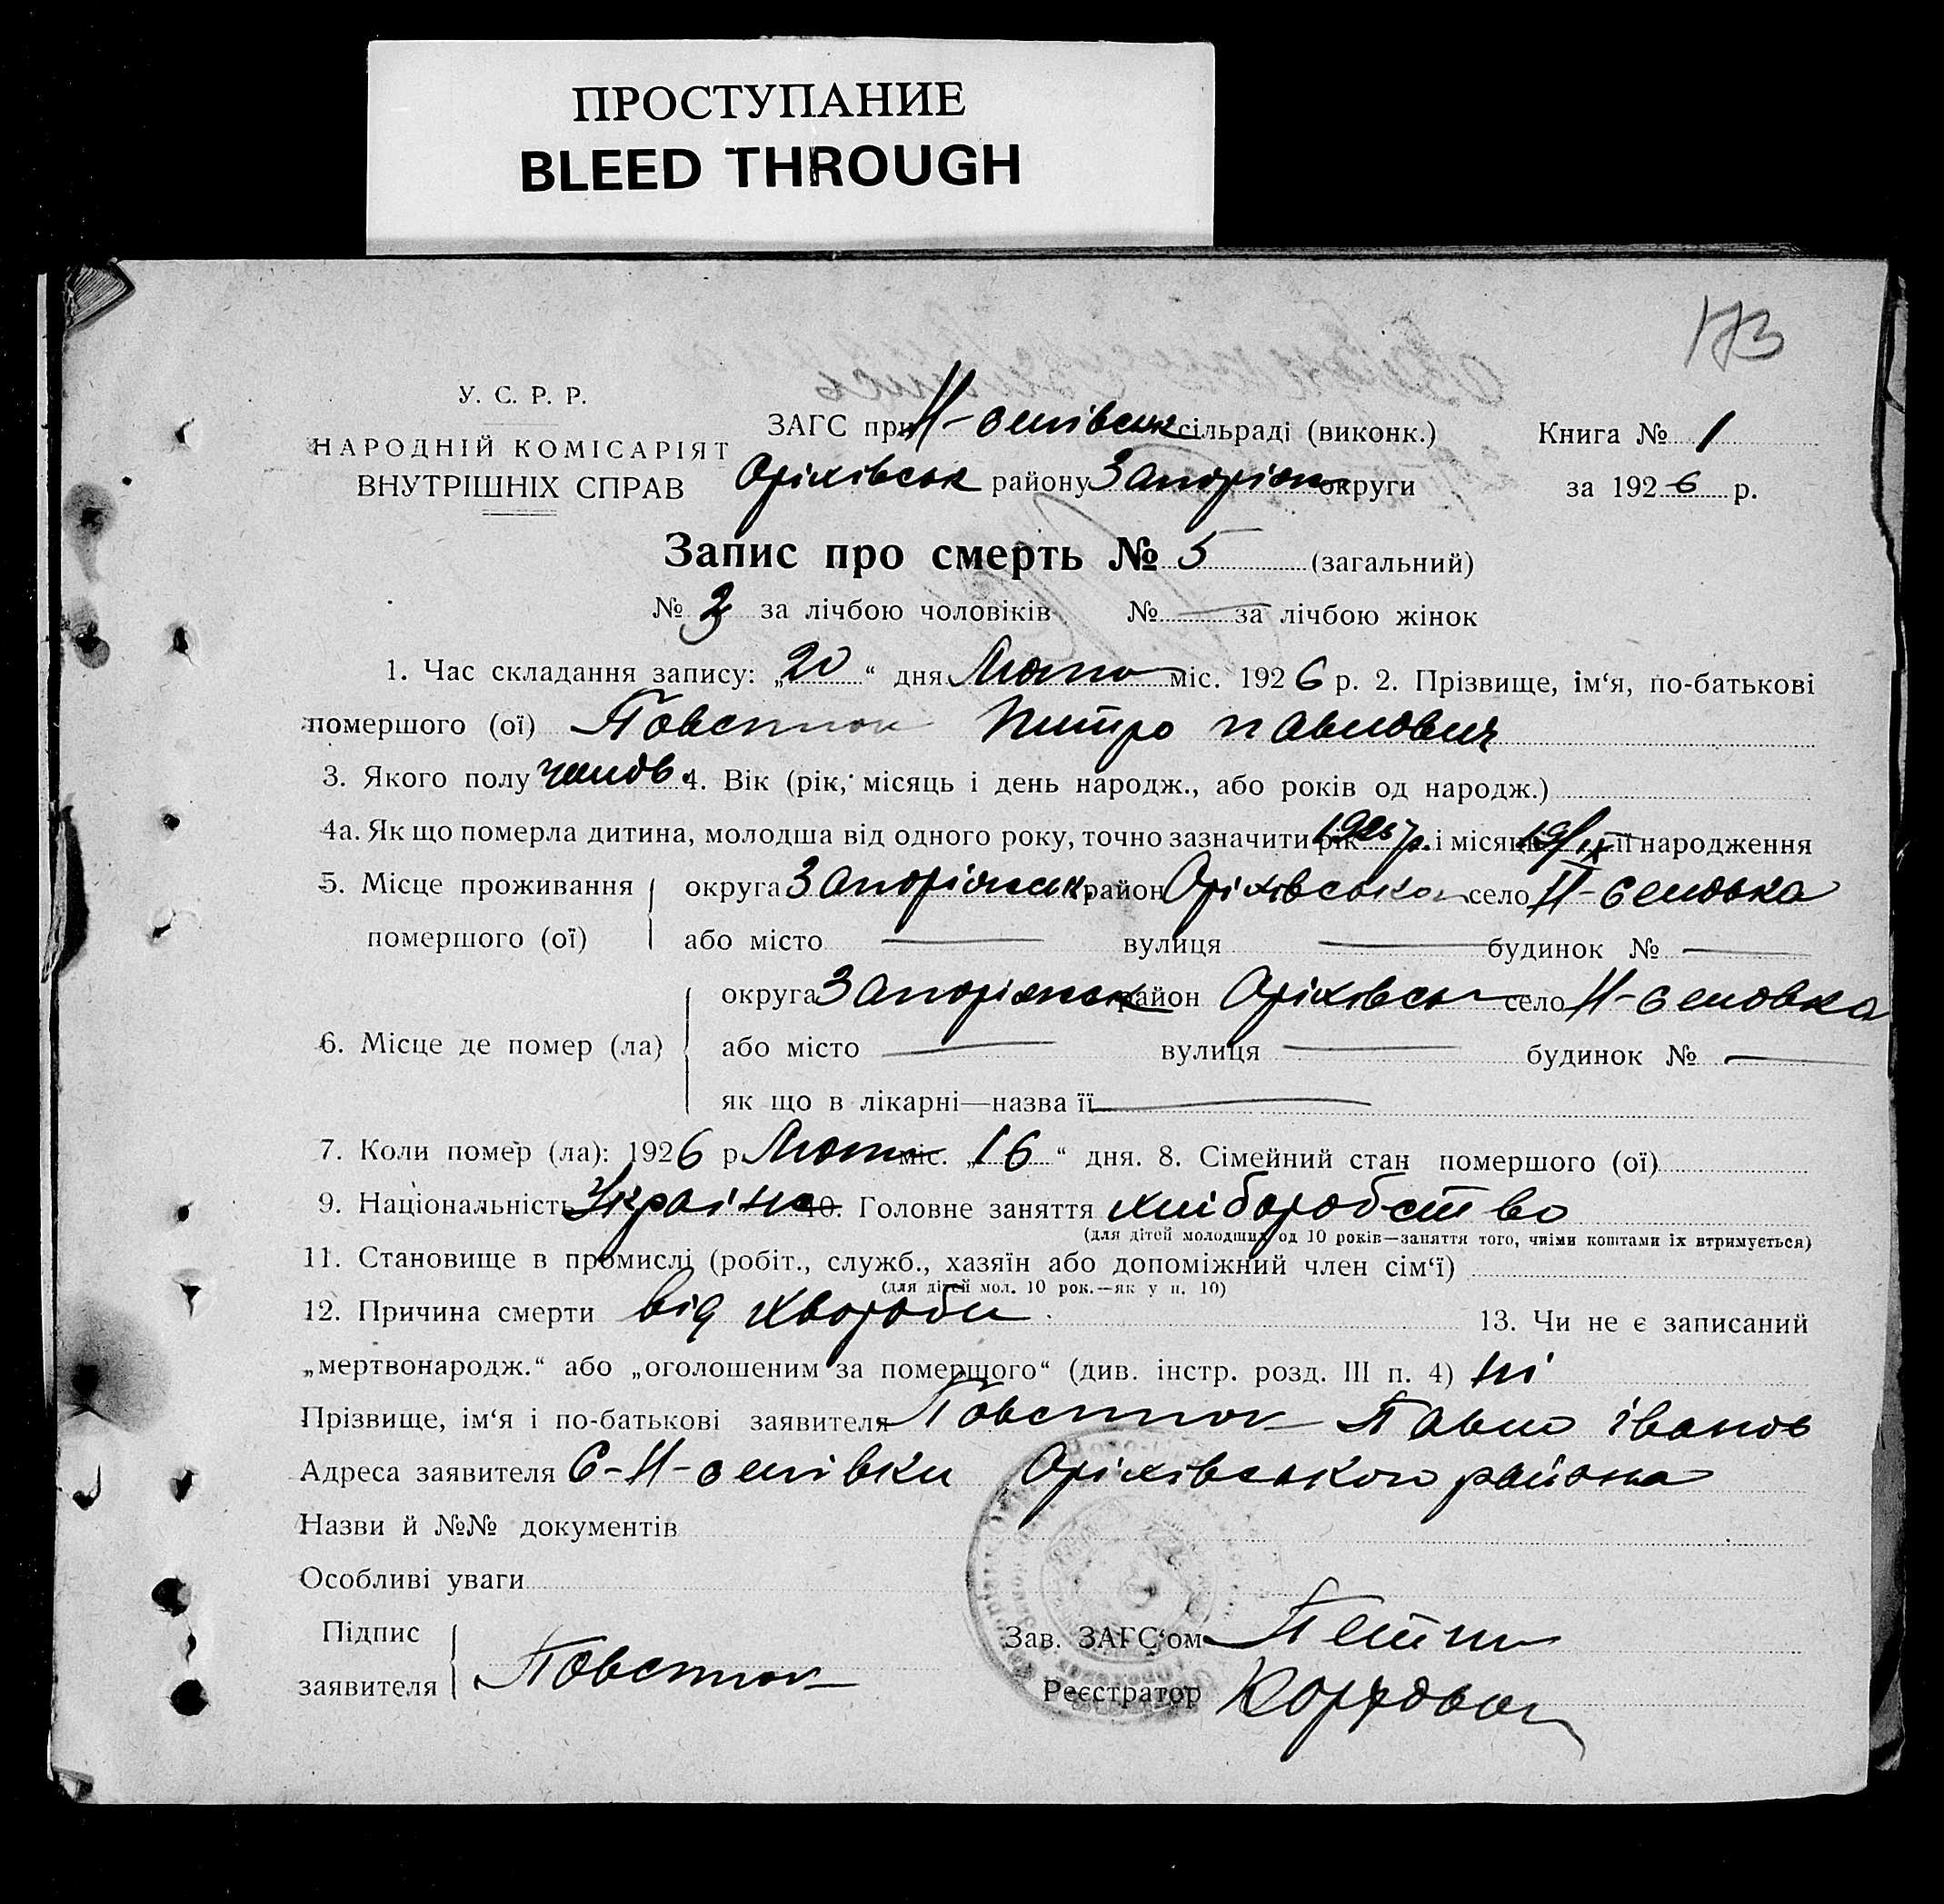 ПРОСТУПАНИЕ
BLEED THROUGH
173
У. С. Р. Р.
НАРОДНІЙ КОМІСАРІЯТ
ВНУТРІШНІХ СПРАВ
ЗАГС при сільраді (виконк.)
Оріхівськ району Запоріж округи
Книга № 1
за 1926 р.
Запис про смерть № 5 (загальний)
№ 3 за лічбою чоловіків № — за лічбою жінок
1. Час складання запису: „20“ дня Лютого міс. 1926 р. 2. Прізвище, ім‘я, по-батькові
помершого (ої) Павлович
3. Якого полу чолов. 4. Вік (рік, місяць і день народж., або років од народж.)
4а. Як що померла дитина, молодша від одного року, точно зазначити рік 1925 р. і місяць 19/IX її народження
5. Місце проживання округа Запоріжськ район Оріхівськ село
помершого (ої) або місто — вулиця — будинок № —
6. Місце де помер (ла) округа Запоріжськ район Оріхівськ село
або місто — вулиця — будинок № —
як що в лікарні—назва її —
7. Коли помер (ла): 1926 р. Лютого міс. „16“ дня. 8. Сімейний стан помершого (ої)
9. Національність Україн 10. Головне заняття хліборобство
(для дітей молодших од 10 років—заняття того, чиїми коштами їх втримується)
11. Становище в промислі (робіт., служб., хазяїн або допоміжний член сім‘ї)
(для дітей мол. 10 рок.—як у п. 10)
12. Причина смерти від хвороби 13. Чи не є записаний
„мертвонародж.“ або „оголошеним за померщого“ (див. інстр. розд. III п. 4) ні
Прізвище, ім‘я і по-батькові заявителя Павло Іванов
Адреса заявителя Оріхівського района
Назви й №№ документів
Особливі уваги
Підпис
заявителя
Зав. ЗАГС‘ом
Реєстратор